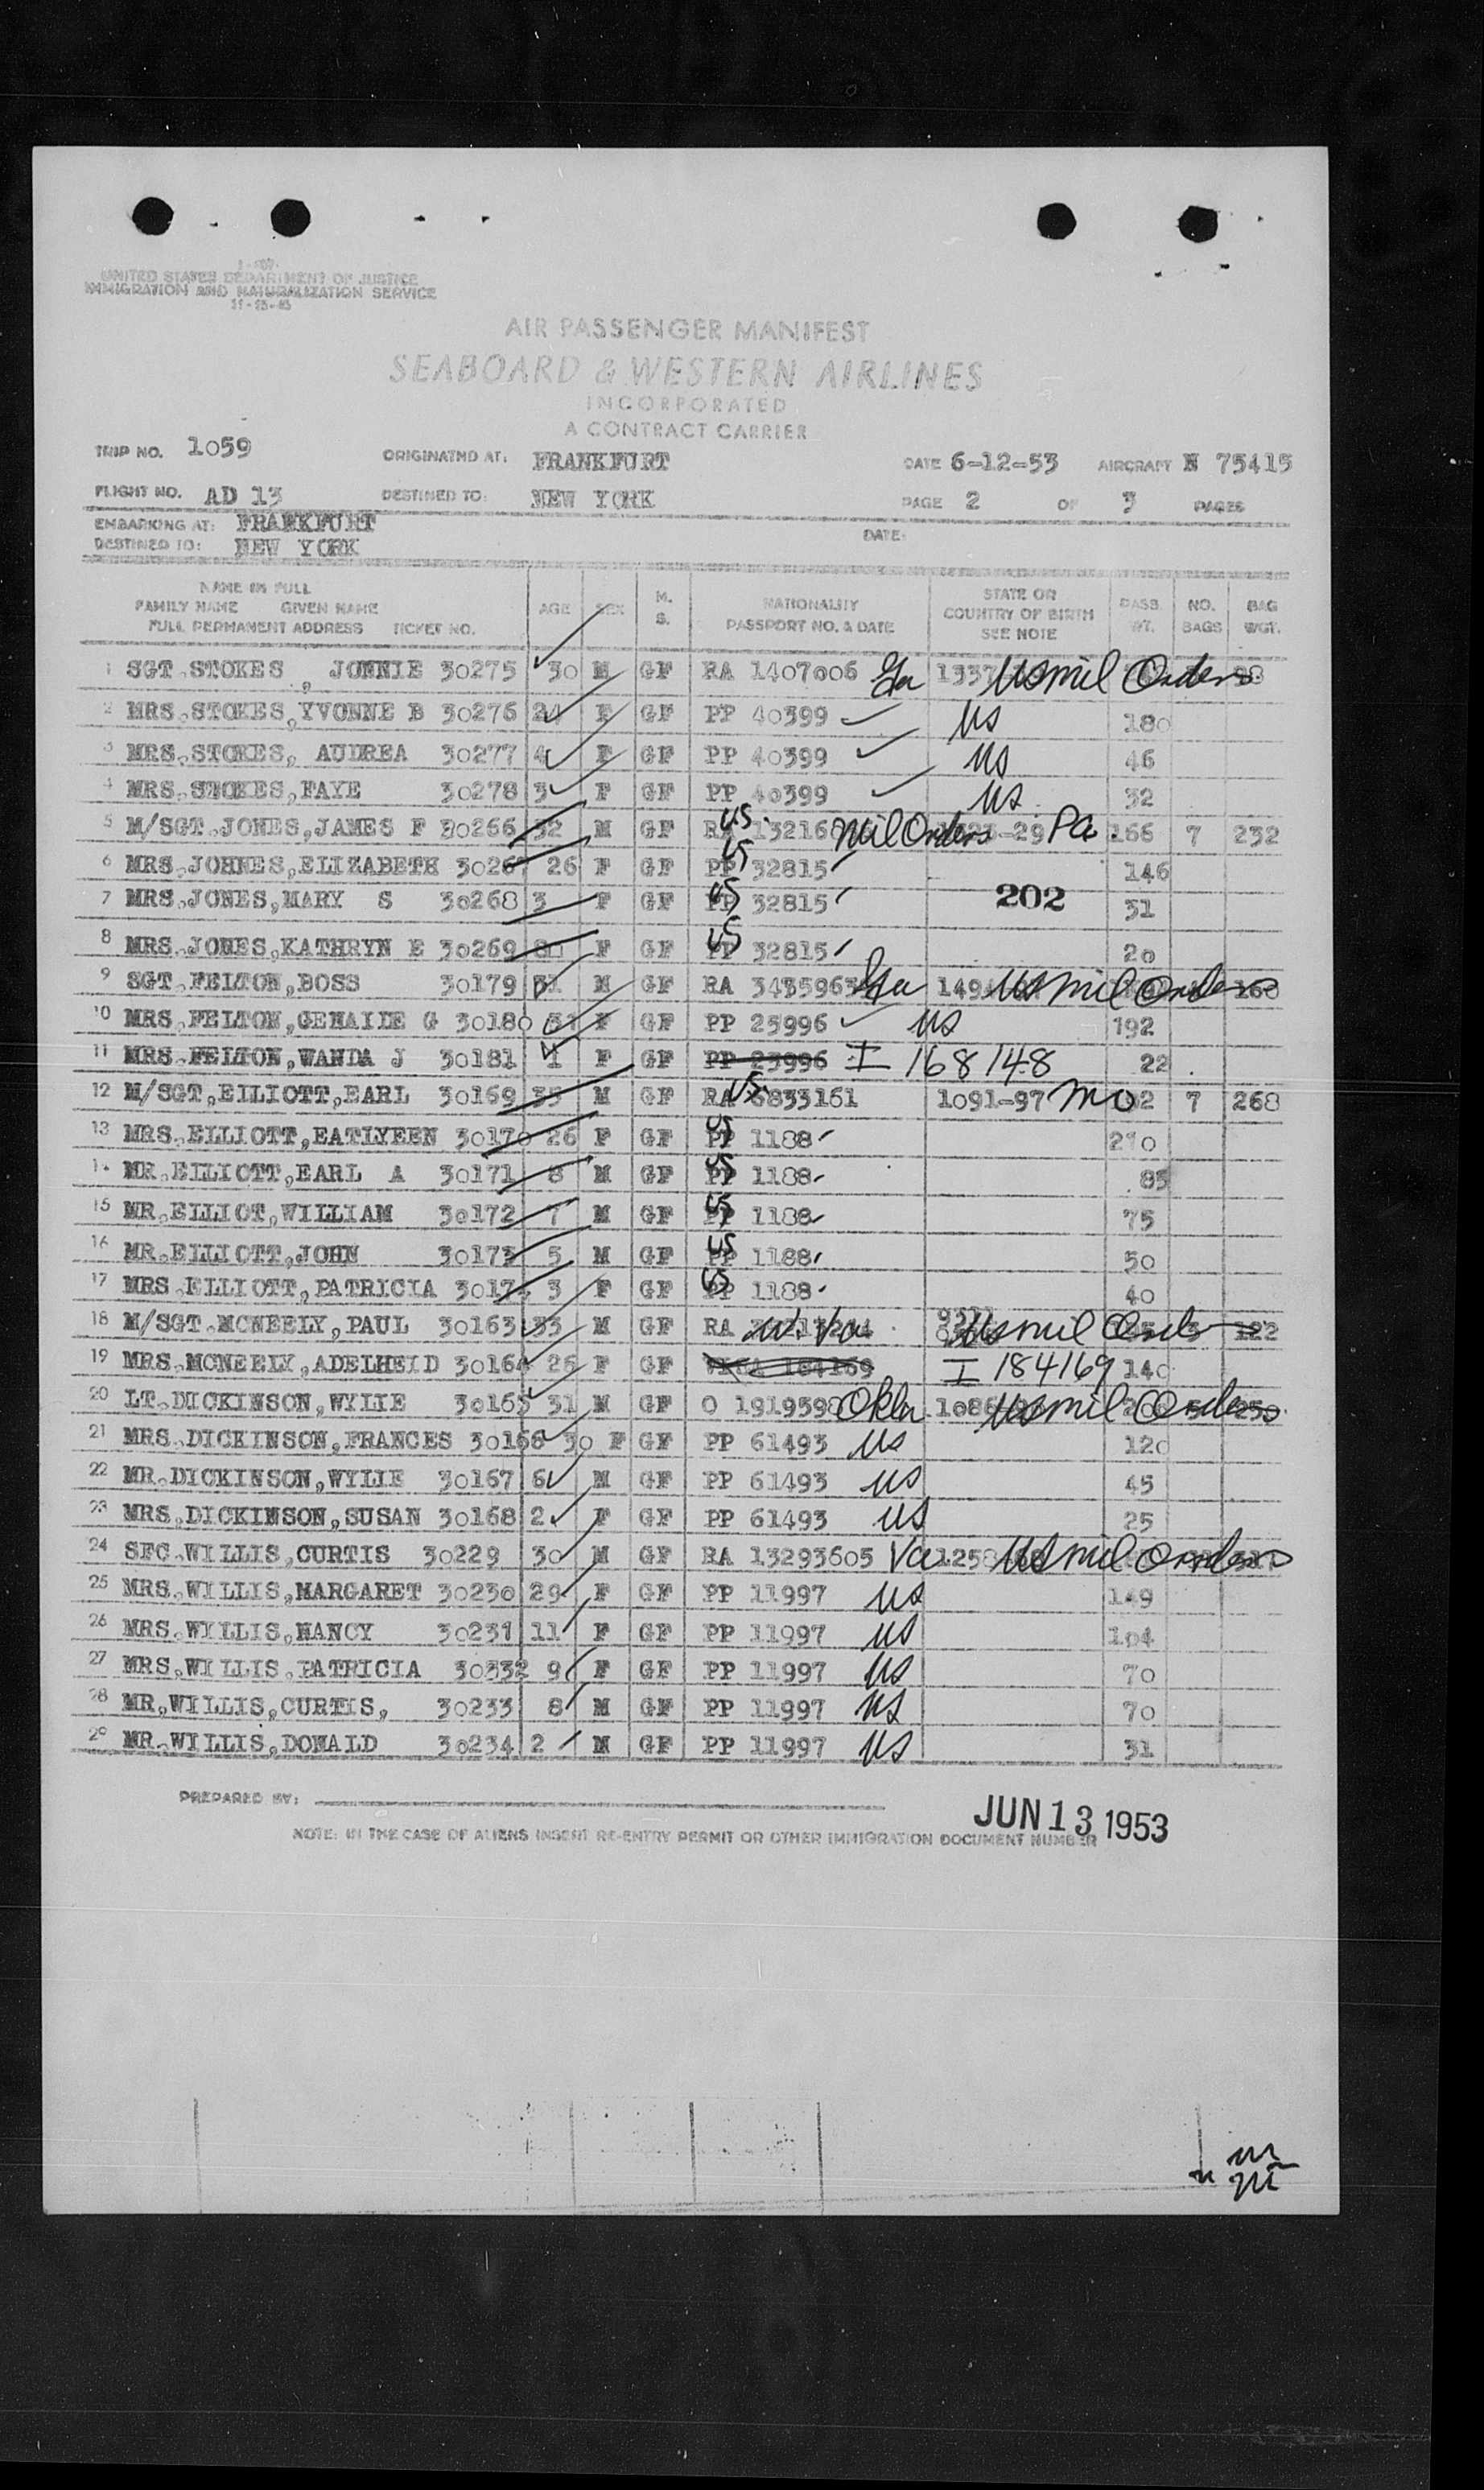 I-466
UNITED STATES DEPARTMENT OF JUSTICE
IMMIGRATION AND NATURALIZATION SERVICE
AIR PASSENGER MANIFEST
SEABOARD & WESTERN AIRLINES
INCORPORATED
A CONTRACT CARRIER
TRIP NO. 1059 ORIGINATND AT: FRANKFURT DATE 6-12-53 AIRCRAFT N 75415
FLIGHT NO. AD 13 DESTINED TO: NEW YORK PAGE 2 OF 3 PAGES
EMBARKING AT: FRANKFURT
DESTINED TO: NEW YORK DATE:
NAME IN FULL
FAMILY NAME GIVEN NAME AGE SEX M. S. NATIONALITY STATE OR COUNTRY OF BIRTH PASS. WT. NO. BAGS BAG WGT.
FULL PERMANENT ADDRESS TICKET NO. PASSPORT NO. & DATE SEE NOTE
1 SGT.STOKES , JONNIE 30275 30 M GF RA 1407006 Ga US mil Orders
2 MRS.STOKES,YVONNE B 30276 24 F GF PP 40399 US 180
3 MRS.STOKES, AUDREA 30277 4 F GF PP 40399 US 46
4 MRS.STOKES,FAYE 30278 3 F GF PP 40399 US 32
5 M/SGT.JONES,JAMES F 30266 32 M GF RA US. Mil Orders -29 Pa 166 7 232
6 MRS.JOHNES,ELIZABETH 30267 26 F GF PP US 32815 146
7 MRS.JONES,MARY S 30268 3 F GF PP US 32815 202 31
8 MRS.JONES,KATHRYN E 30269 F GF PP US 32815 20
9 SGT.FELTON,BOSS 30179 31 M GF RA 3435963 Ga US mil Orders 160
10 MRS.FELTON,GENAIDE G 30180 31 F GF PP 25996 US 192
11 MRS.FELTON,WANDA J 30181 1 F GF PP 25996 I 168148 22
12 M/SGT,ELLIOTT,EARL 30169 35 M GF RA US. 6833161 1091-97 Mo 7 268
13 MRS.ELLIOTT,EATLYEEN 30170 26 F GF PP US 1188 210
14 MR.ELLIOTT,EARL A 30171 8 M GF PP US 1188 85
15 MR.ELLIOT,WILLIAM 30172 7 M GF PP US 1188 75
16 MR.ELLIOTT,JOHN 30173 5 M GF PP US 1188 50
17 MRS.ELLIOTT,PATRICIA 30174 3 F GF PP US 1188 40
18 M/SGT.MCNEELY,PAUL 30163 33 M GF RA W. Va US mil Orders 122
19 MRS.MCNEELY,ADELHEID 30164 26 F GF I 184169 140
20 LT.DICKINSON,WYLIE 30165 31 M GF O 1919598 Okla US mil Orders 250
21 MRS.DICKINSON,FRANCES 30166 30 F GF PP 61493 US 120
22 MR.DICKINSON,WYLIE 30167 6 M GF PP 61493 US 45
23 MRS.DICKINSON,SUSAN 30168 2 F GF PP 61493 US 25
24 SFC.WILLIS,CURTIS 30229 30 M GF RA 13293605 Va US mil Orders
25 MRS.WILLIS,MARGARET 30230 29 F GF PP 11997 US 149
26 MRS.WILLIS,NANCY 30231 11 F GF PP 11997 US 104
27 MRS.WILLIS.PATRICIA 30332 9 F GF PP 11997 US 70
28 MR,WILLIS,CURTIS, 30233 8 M GF PP 11997 US 70
29 MR.WILLIS,DONALD 30234 2 M GF PP 11997 US 31
PREPARED BY:
JUN 13 1953
NOTE: IN THE CASE OF ALIENS INSERT RE-ENTRY PERMIT OR OTHER IMMIGRATION DOCUMENT NUMBER